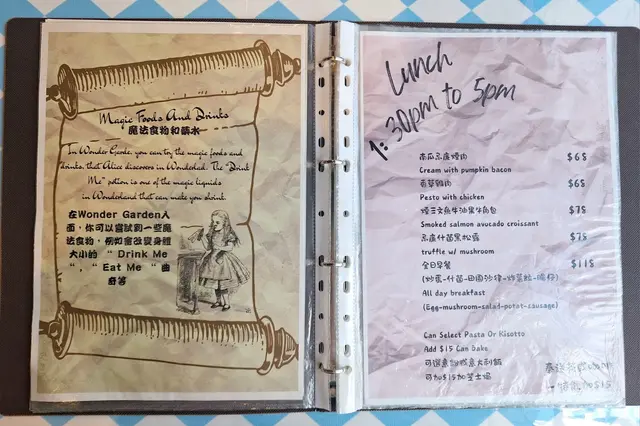 Magic Foods And Drinks
魔法食物和藥水
In Wonder Garde, you can try the magic foods and
drinks, that Alice discovers in Wonderlad. The "Drink
Me" potion is one of the magic liquids
in Wonderland that can make you shrink.
在Wonder Garden入
面,你可以嘗試到一些魔
法食物,例如會改變身體
大小的 " Drink Me
", " Eat Me " 曲
奇等
Lunch
1:30pm to 5pm
南瓜忌廉煙肉 $65
Cream with pumpkin bacon
香草雞肉 $65
Pesto with chicken
煙三文魚牛油果牛角包 $75
Smoked salmon avocado croissant
忌廉什菌黑松露 $75
truffle w/ mushroom
全日早餐 $115
(炒蛋-什菌-田園沙律-炒薯粒-腸仔)
All day breakfast
(Egg-mushroom-salad-potat-sausage)
Can Select Pasta Or Risotto
Add $15 Can Bake
可選意粉或意大利飯
可加$15加芝士焗
加$15